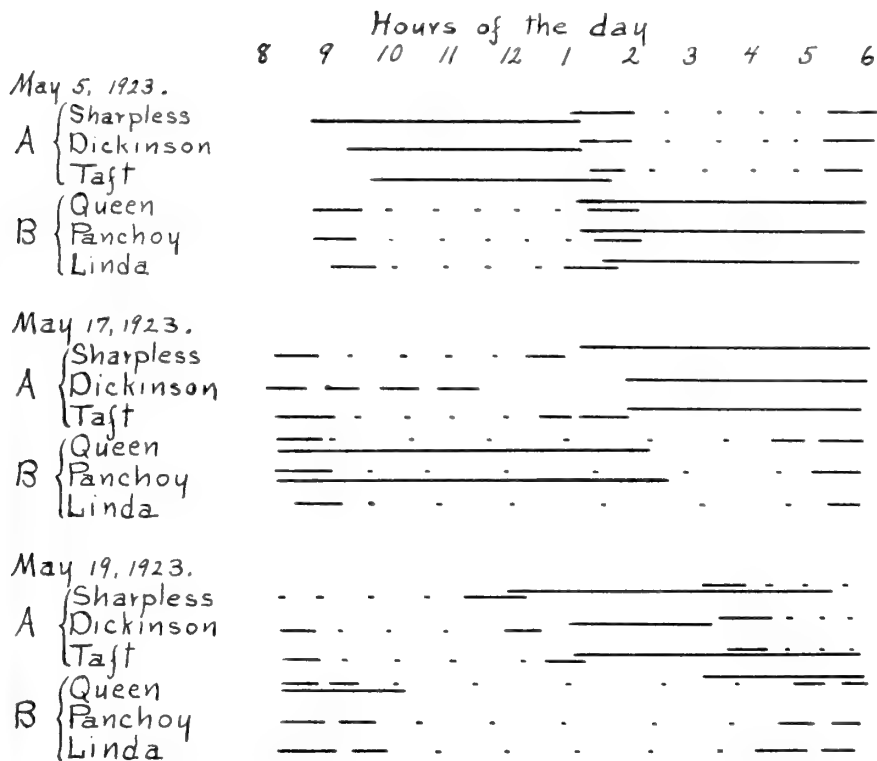 Hours of the day
8 9 10 11 12 1 2 3 4 5 6
May 5, 1923.
A { Sharpless
Dickinson
Taft
B { Queen
Panchoy
Linda
May 17, 1923.
A { Sharpless
Dickinson
Taft
B { Queen
Panchoy
Linda
May 19, 1923.
A { Sharpless
Dickinson
Taft
B { Queen
Panchoy
Linda